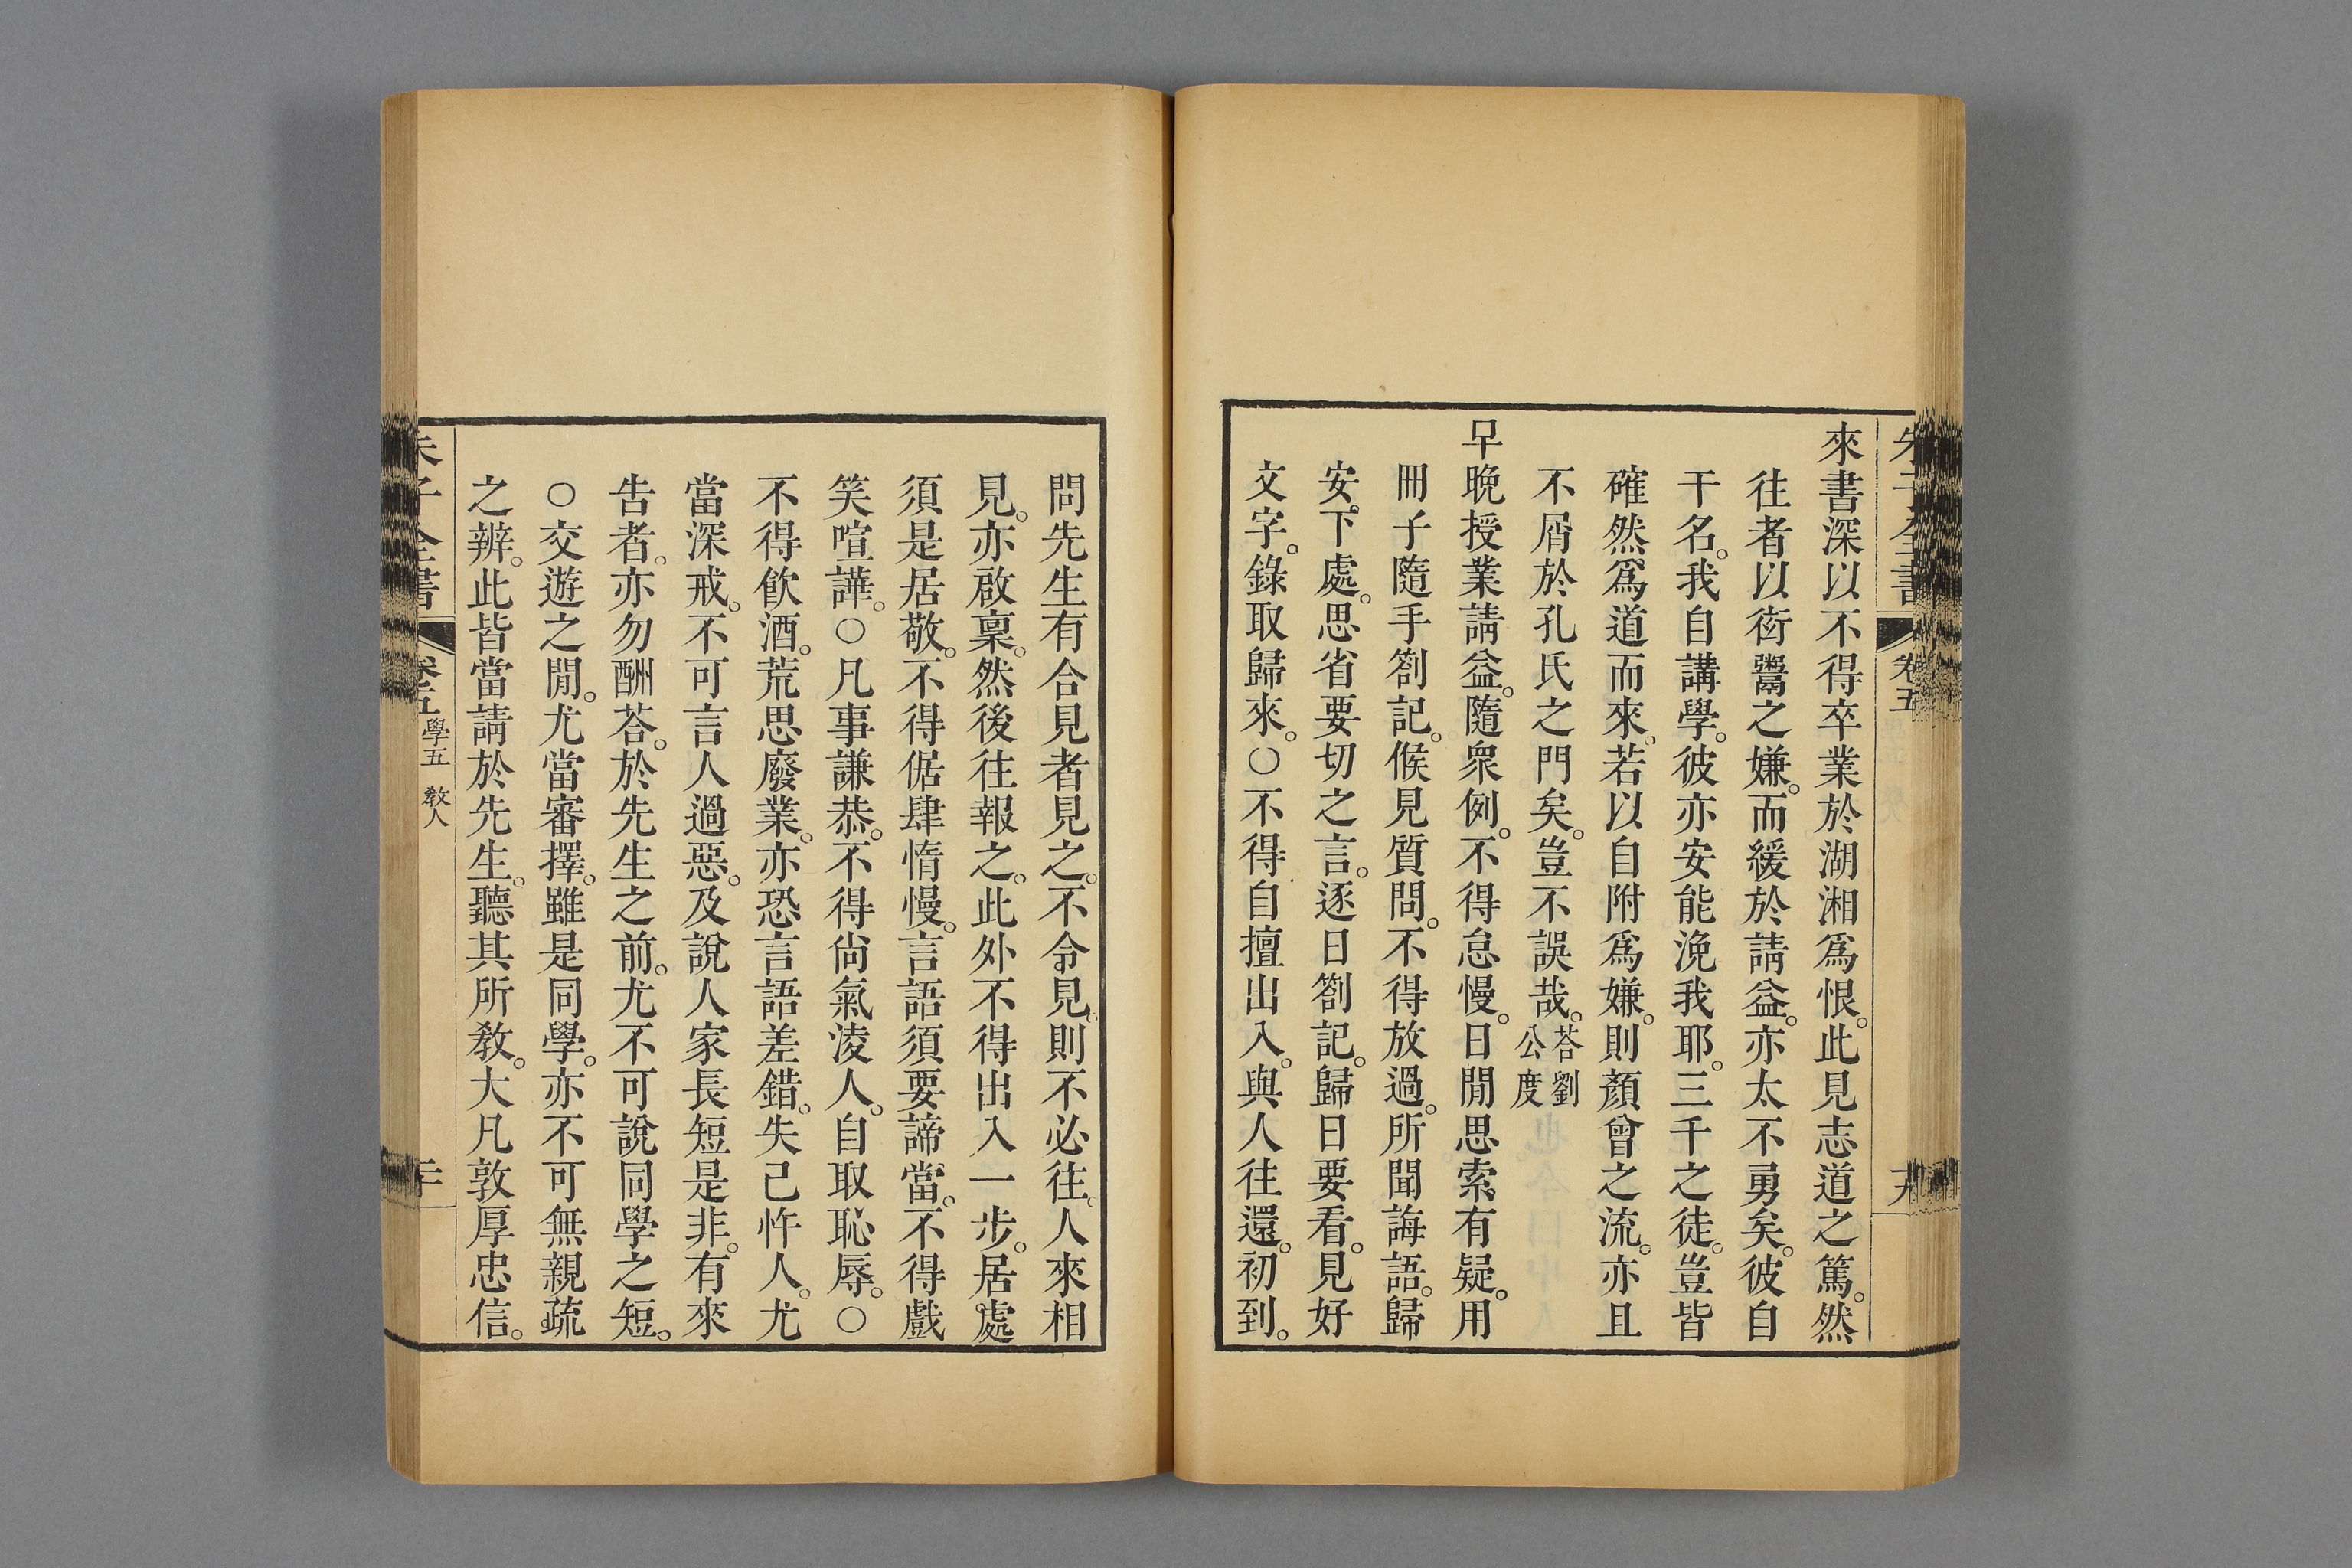 來書深以不得卒業於湖湘爲恨。此見志道之篤。然
往者以衒鬻之嫌。而緩於請益。亦太不勇矣。彼自
干名。我自講學。彼亦安能浼我耶。三千之徒。豈皆
確然爲道而來。若以自附爲嫌。則顏曾之流。亦且
不屑於孔氏之門矣。豈不誤哉。荅劉公度
早晚授業請益。隨衆例。不得怠慢。日閒思索有疑。用
冊子隨手劄記。候見質問。不得放過。所聞誨語。歸
安下處。思省要切之言。逐日劄記。歸日要看。見好
文字。錄取歸來。○不得自擅出入。與人往還。初到。
問先生有合見者見之。不令見。則不必往。人來相
見。亦啟稟。然後往報之。此外不得出入一步。居處
須是居敬。不得倨肆惰慢。言語須要諦當。不得戲
笑喧譁。○凡事謙恭。不得尙氣淩人。自取恥辱。○
不得飮酒。荒思廢業。亦恐言語差錯。失己忤人。尤
當深戒。不可言人過惡。及說人家長短是非。有來
告者。亦勿酬荅。於先生之前。尤不可說同學之短。
○交遊之閒。尤當審擇。雖是同學。亦不可無親疏
之辨。此皆當請於先生。聽其所敎。大凡敦厚忠信。
學五 敎人